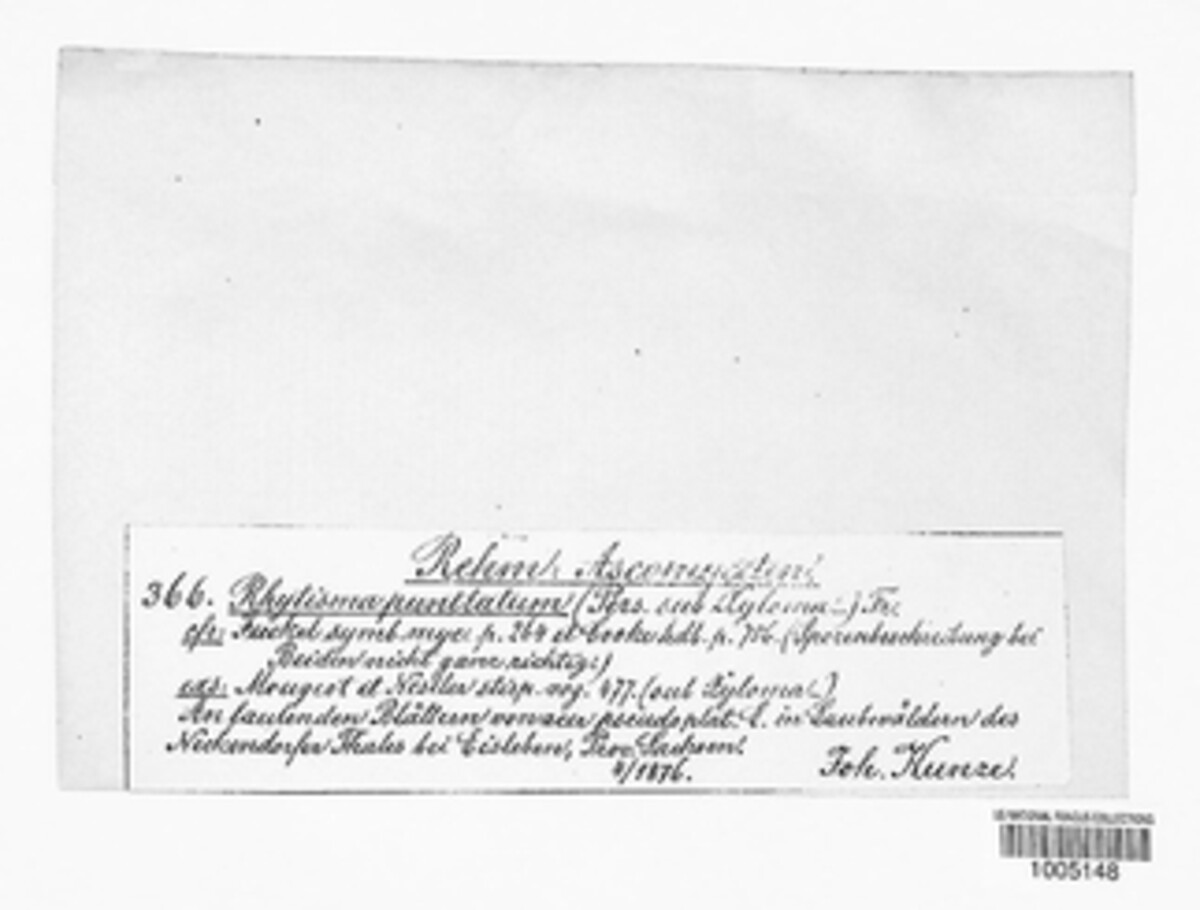 Rehm: Ascomyceten:
366. Rhytisma punctatum (Pers. sub Xyloma:) Fr:
cfr: Fuckel symb. myc: p. 264 et Cooke hdb. p. 756. (Sporenbeschreibung bei
Beiden nicht ganz richtig:)
exs: Mougeot et Nestler stirp. vog. 477. (sub Xyloma:)
An faulenden Blättern von acer pseudoplat. L. in Laubwäldern des
Neckendorfer Thales bei Eisleben, Prov. Sachsen:
4/1876. Joh. Kunze:
US NATIONAL FUNGUS COLLECTIONS
1005148